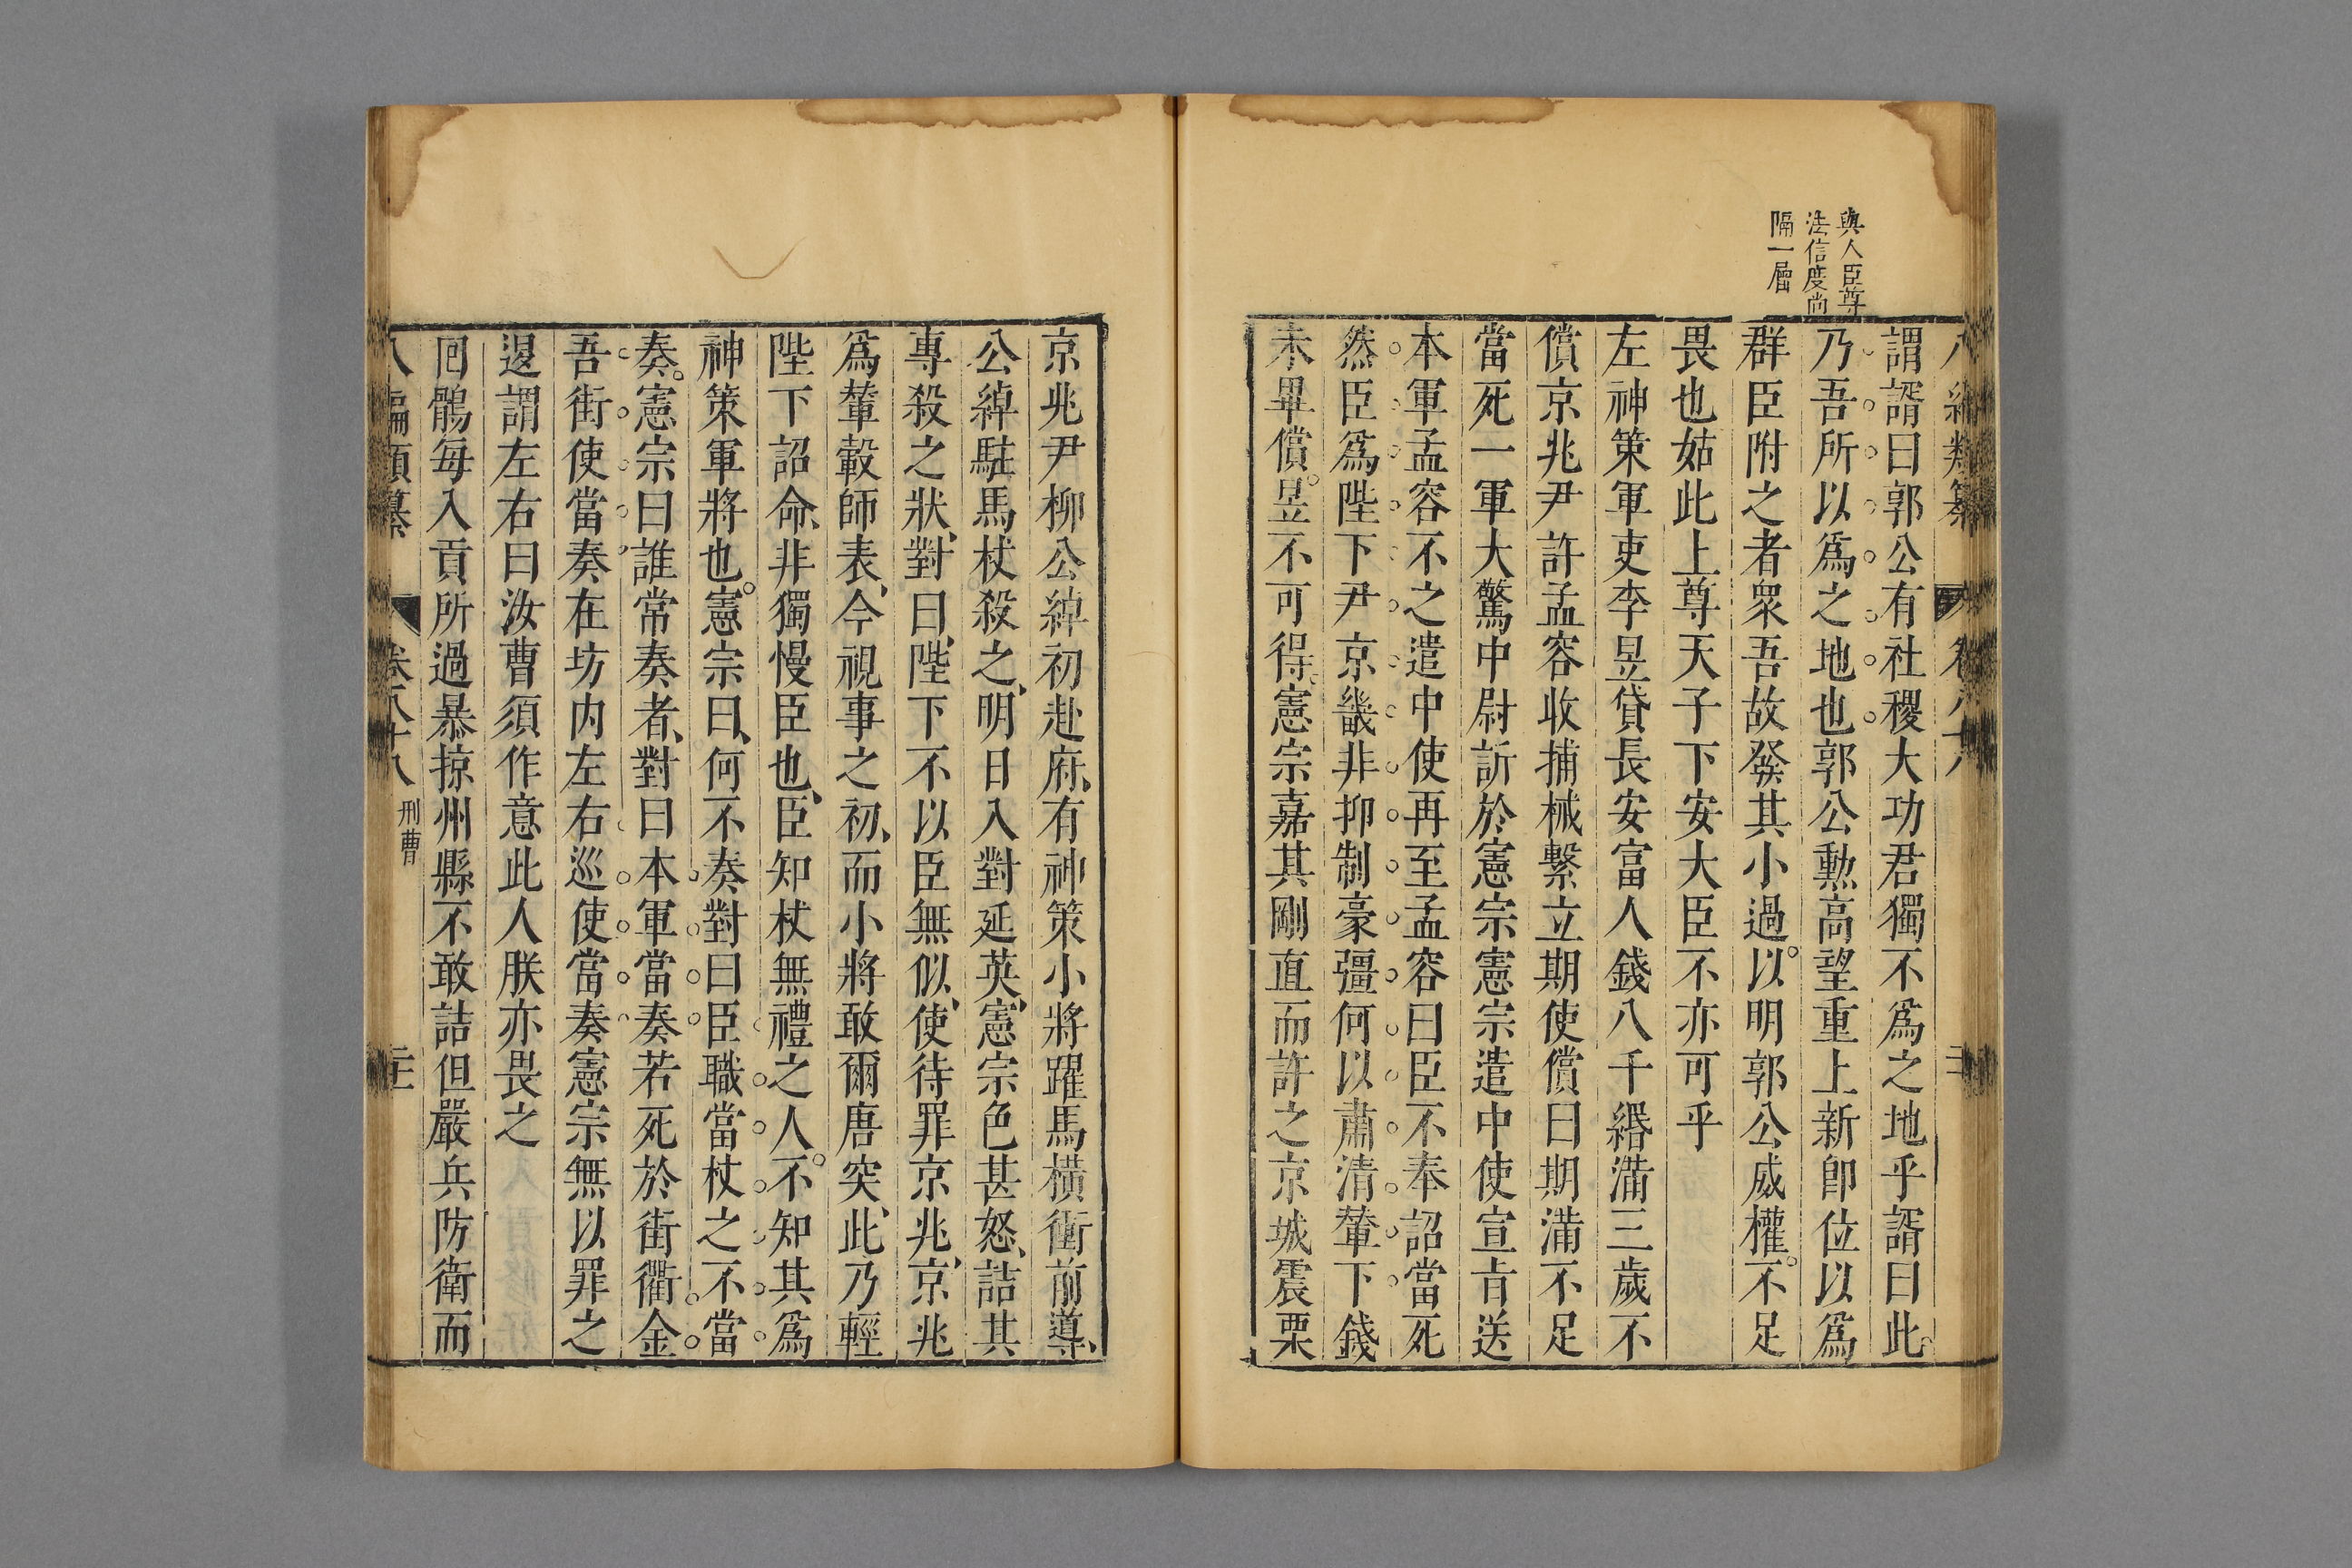 與人臣尊
法信度尚
隔一層
謂諝曰郭公有社稷大功君獨不爲之地乎諝曰此
乃吾所以爲之地也郭公勲高望重上新卽位以爲
群臣附之者眾吾故發其小過以明郭公威權不足
畏也姑此上尊天子下安大臣不亦可乎
左神策軍吏李昱貸長安富人錢八千緡滿三歲不
償京兆尹許孟容收捕械繫立期使償曰期滿不足
當死一軍大驚中尉訴於憲宗憲宗遣中使宣旨送
本軍孟容不之遣中使再至孟容曰臣不奉詔當死
然臣爲陛下尹京畿非抑制豪彊何以肅清輦下錢
未畢償昱不可得憲宗嘉其剛直而許之京城震栗
京兆尹柳公綽初赴府有神策小將躍馬橫衝前導
公綽駐馬杖殺之明日入對延英憲宗色甚怒詰其
專殺之狀對曰陛下不以臣無似使待罪京兆京兆
爲輦轂師表今視事之初而小將敢爾唐突此乃輕
陛下詔命非獨慢臣也臣知杖無禮之人不知其爲
神策軍將也憲宗曰何不奏對曰臣職當杖之不當
奏憲宗曰誰常奏者對曰本軍當奏若死於街衢金
吾街使當奏在坊内左右巡使當奏憲宗無以罪之
退謂左右曰汝曹須作意此人朕亦畏之
囘鶻每入貢所過暴掠州縣不敢詰但嚴兵防衛而
八編類纂 卷八十八 刑曹